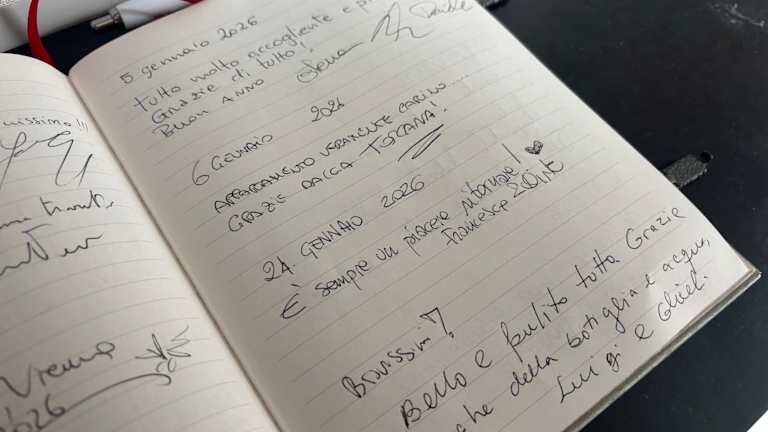 uissimo!!!
Vienna
2026
5 gennaio 2026
tutto molto accogliente e
Grazie di tutto!
Buon ANNO
Elena Davide
6 GENNAIO 2026
APPARTAMENTO VERAMENTE CARINO....
GRAZIE DALLA TOSCANA!
24 GENNAIO 2026
È sempre un piacere ritornare!
Francesca
Bravissimi!
Bello e pulito tutto. Grazie
che della bottiglia e acqua,
Luigi e